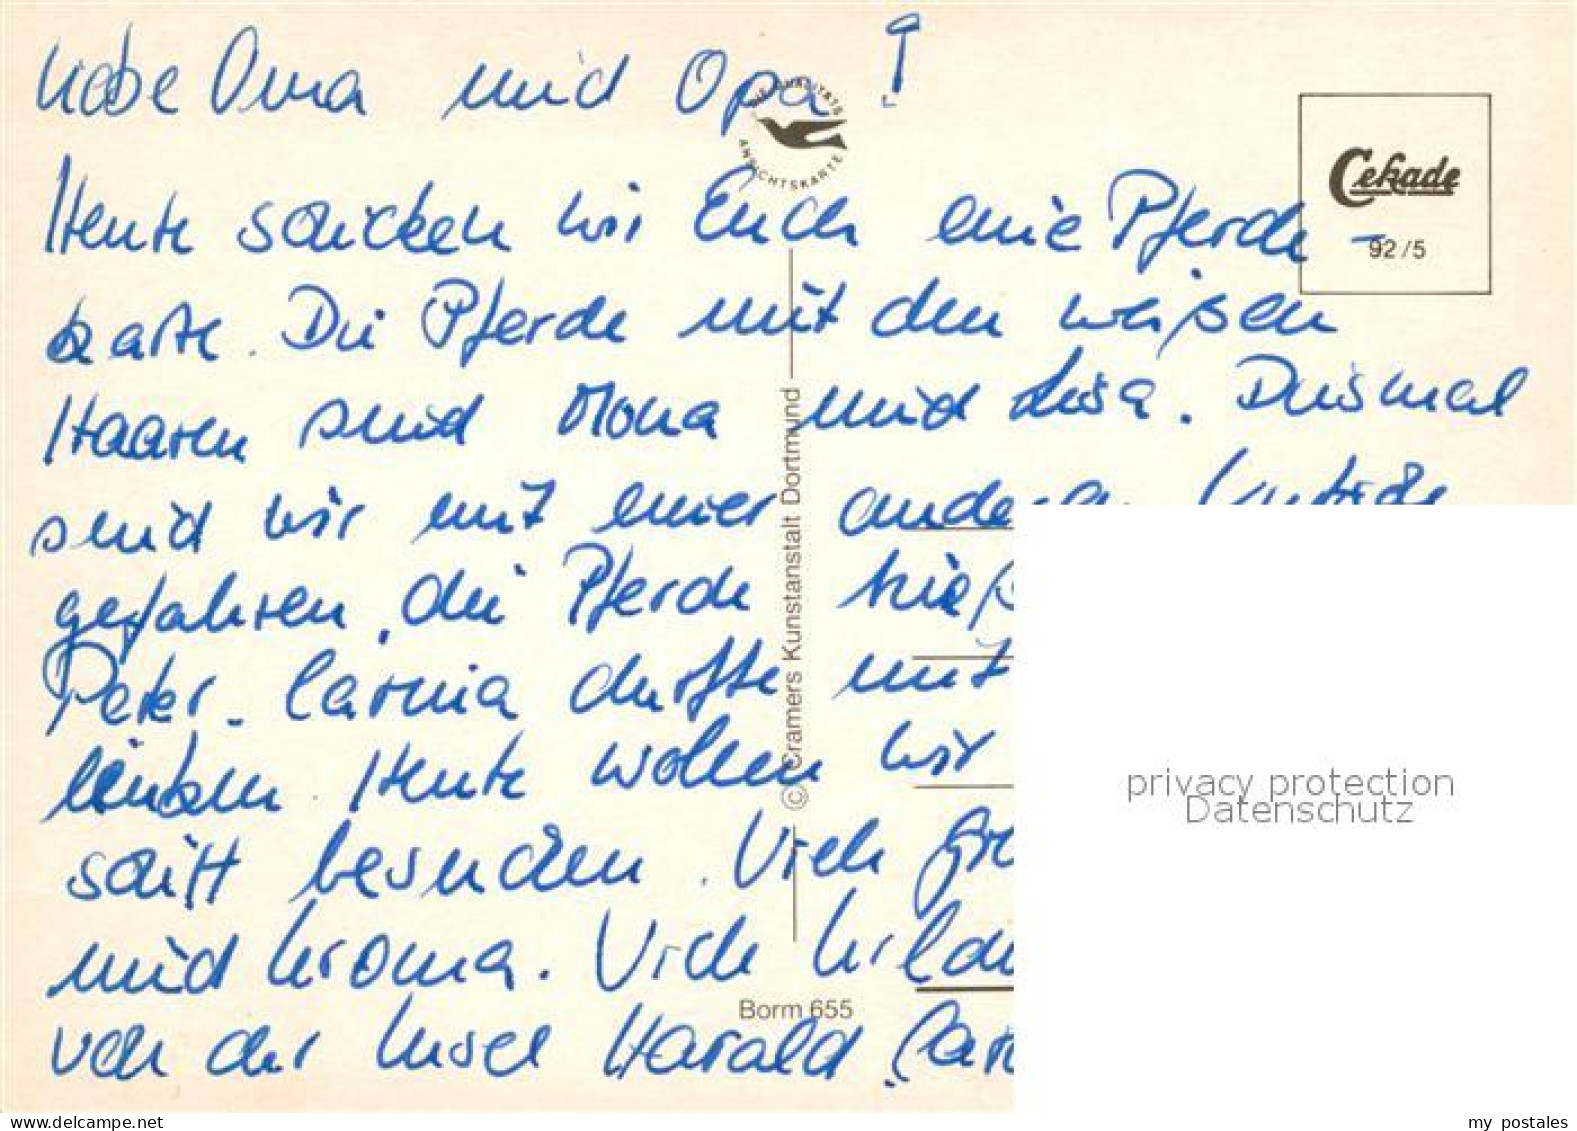 Liebe Oma und Opa!
DIE QUALITÄTS
ANSICHTSKARTE
Heute schicken wir Euch eine Pferde-
Cekade
92/5
karte. Die Pferde mit den weißen
Haaren sind Mona und Lisa. Diesmal
sind wir mit einer anderen Kutsche
gefahren, die Pferde hieß
Peter. Carina durfte mit
lenken. Heute wollen wir
schiff besuchen. Viele Gr
und Uroma. Viele
von der Insel Harald, Car
© Cramers Kunstanstalt Dortmund
Borm 655
privacy protection
Datenschutz
my postales